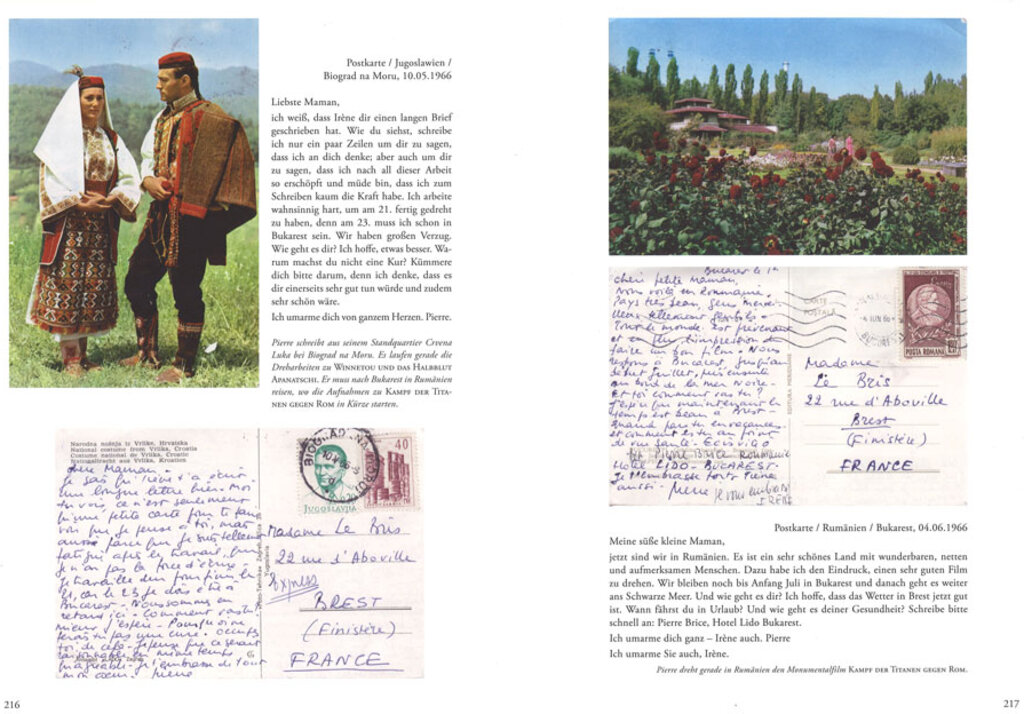 Postkarte / Jugoslawien /
Biograd na Moru, 10.05.1966
Liebste Maman,
ich weiß, dass Irène dir einen langen Brief
geschrieben hat. Wie du siehst, schreibe
ich nur ein paar Zeilen um dir zu sagen,
dass ich an dich denke; aber auch um dir
zu sagen, dass ich nach all dieser Arbeit
so erschöpft und müde bin, dass ich zum
Schreiben kaum die Kraft habe. Ich arbeite
wahnsinnig hart, um am 21. fertig gedreht
zu haben, denn am 23. muss ich schon in
Bukarest sein. Wir haben großen Verzug.
Wie geht es dir? Ich hoffe, etwas besser. Wa-
rum machst du nicht eine Kur? Kümmere
dich bitte darum, denn ich denke, dass es
dir einerseits sehr gut tun würde und zudem
sehr schön wäre.
Ich umarme dich von ganzem Herzen. Pierre.
Pierre schreibt aus seinem Standquartier Crvena
Luka bei Biograd na Moru. Es laufen gerade die
Dreharbeiten zu WINNETOU UND DAS HALBBLUT
APANATSCHI. Er muss nach Bukarest in Rumänien
reisen, wo die Aufnahmen zu KAMPF DER TITA-
NEN GEGEN ROM in Kürze starten.
Narodna nošnja iz Vrlike, Hrvatska
National costume from Vrlika, Croatia
Costume national de Vrlika, Croatie
Nationaltracht aus Vrlika, Kroatien
chère Maman -
je sais qu'Irène t'a écrit
une longue lettre
ce n'est seulement
qu'une petite carte pour te
que je pense à toi, mais
aussi parce que je suis tellement
fatigué après le travail, que
je n'ai pas la force d'écrire -
je travaille
21, car le 23 je dois être à
Bucarest - Nous sommes en
retard ici - Comment vas-tu
mieux j'espère - Pourquoi ne
feras tu pas une cure. occupes
toi de cela - je pense que ce serait
en même temps
agréable - je t'embrasse de tout
mon cœur. Pierre
BIOGRAD NA MORU
40
JUGOSLAVIJA
Madame Le Bris
22 rue d'Aboville
Express
BREST
(Finistère)
FRANCE
216
Bucarest le
chère petite Maman,
Nous voilà en Roumanie.
Pays très beau, gens merveil-
leux tellement gentils -
Tout le monde est prévenant
et en plus l'impression de
faire un bon film - Nous
restons à Bucarest jusqu'au
début Juillet, puis ensuite
au bord de la mer Noire -
Et toi comment vas tu ?
J'espère que maintenant le
temps est beau à Brest -
Quand pars tu en vacances
et comment es tu au point
de vue santé - Ecris vite
Pierre Brice Roumanie
Hôtel LIDO - BUCAREST -
Je t'embrasse fort Irène
aussi - Pierre je vous embrasse
IRENE
CARTE
POSTALĂ
EDITURA MERIDIANE
POSTA ROMÎNĂ
Madame
Le Bris
22 rue d'Aboville
Brest
(Finistère)
FRANCE
Postkarte / Rumänien / Bukarest, 04.06.1966
Meine süße kleine Maman,
jetzt sind wir in Rumänien. Es ist ein sehr schönes Land mit wunderbaren, netten
und aufmerksamen Menschen. Dazu habe ich den Eindruck, einen sehr guten Film
zu drehen. Wir bleiben noch bis Anfang Juli in Bukarest und danach geht es weiter
ans Schwarze Meer. Und wie geht es dir? Ich hoffe, dass das Wetter in Brest jetzt gut
ist. Wann fährst du in Urlaub? Und wie geht es deiner Gesundheit? Schreibe bitte
schnell an: Pierre Brice, Hotel Lido Bukarest.
Ich umarme dich ganz – Irène auch. Pierre
Ich umarme Sie auch, Irène.
Pierre dreht gerade in Rumänien den Monumentalfilm KAMPF DER TITANEN GEGEN ROM.
217